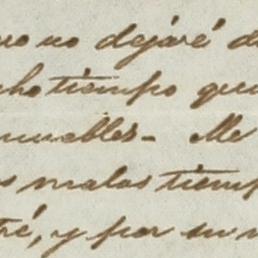 no dejaré d
ho tiempo que
muebles - Me
s malos tiemp
ré, y por su